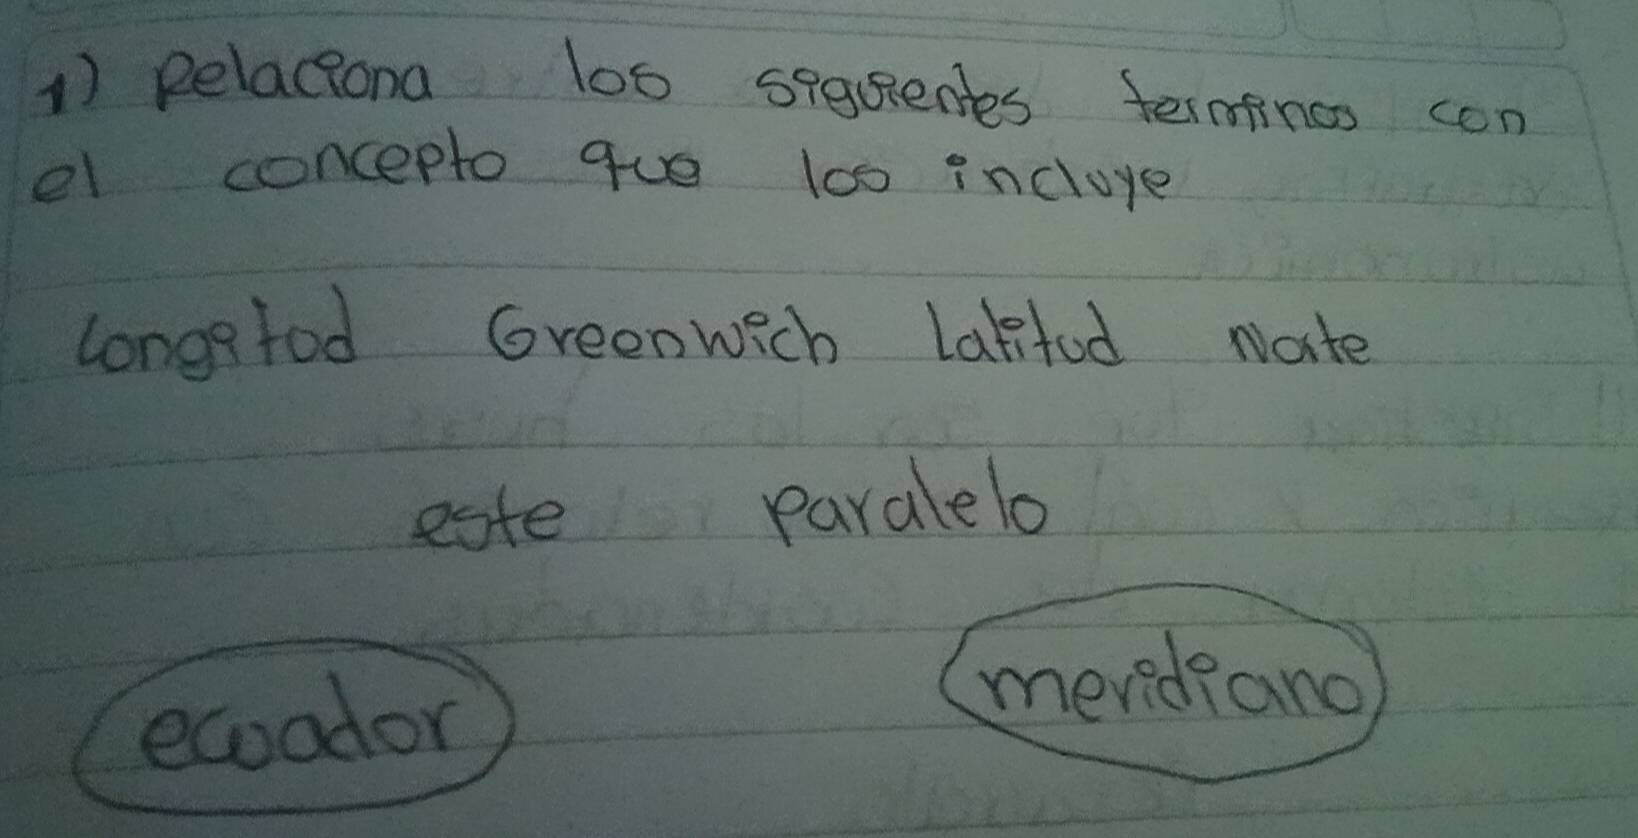 1) Relaciona los siguientes terminos con
el concepto que los incluye
Longitud Greenwich Latitud Norte
este paralelo
ecuador meridiano